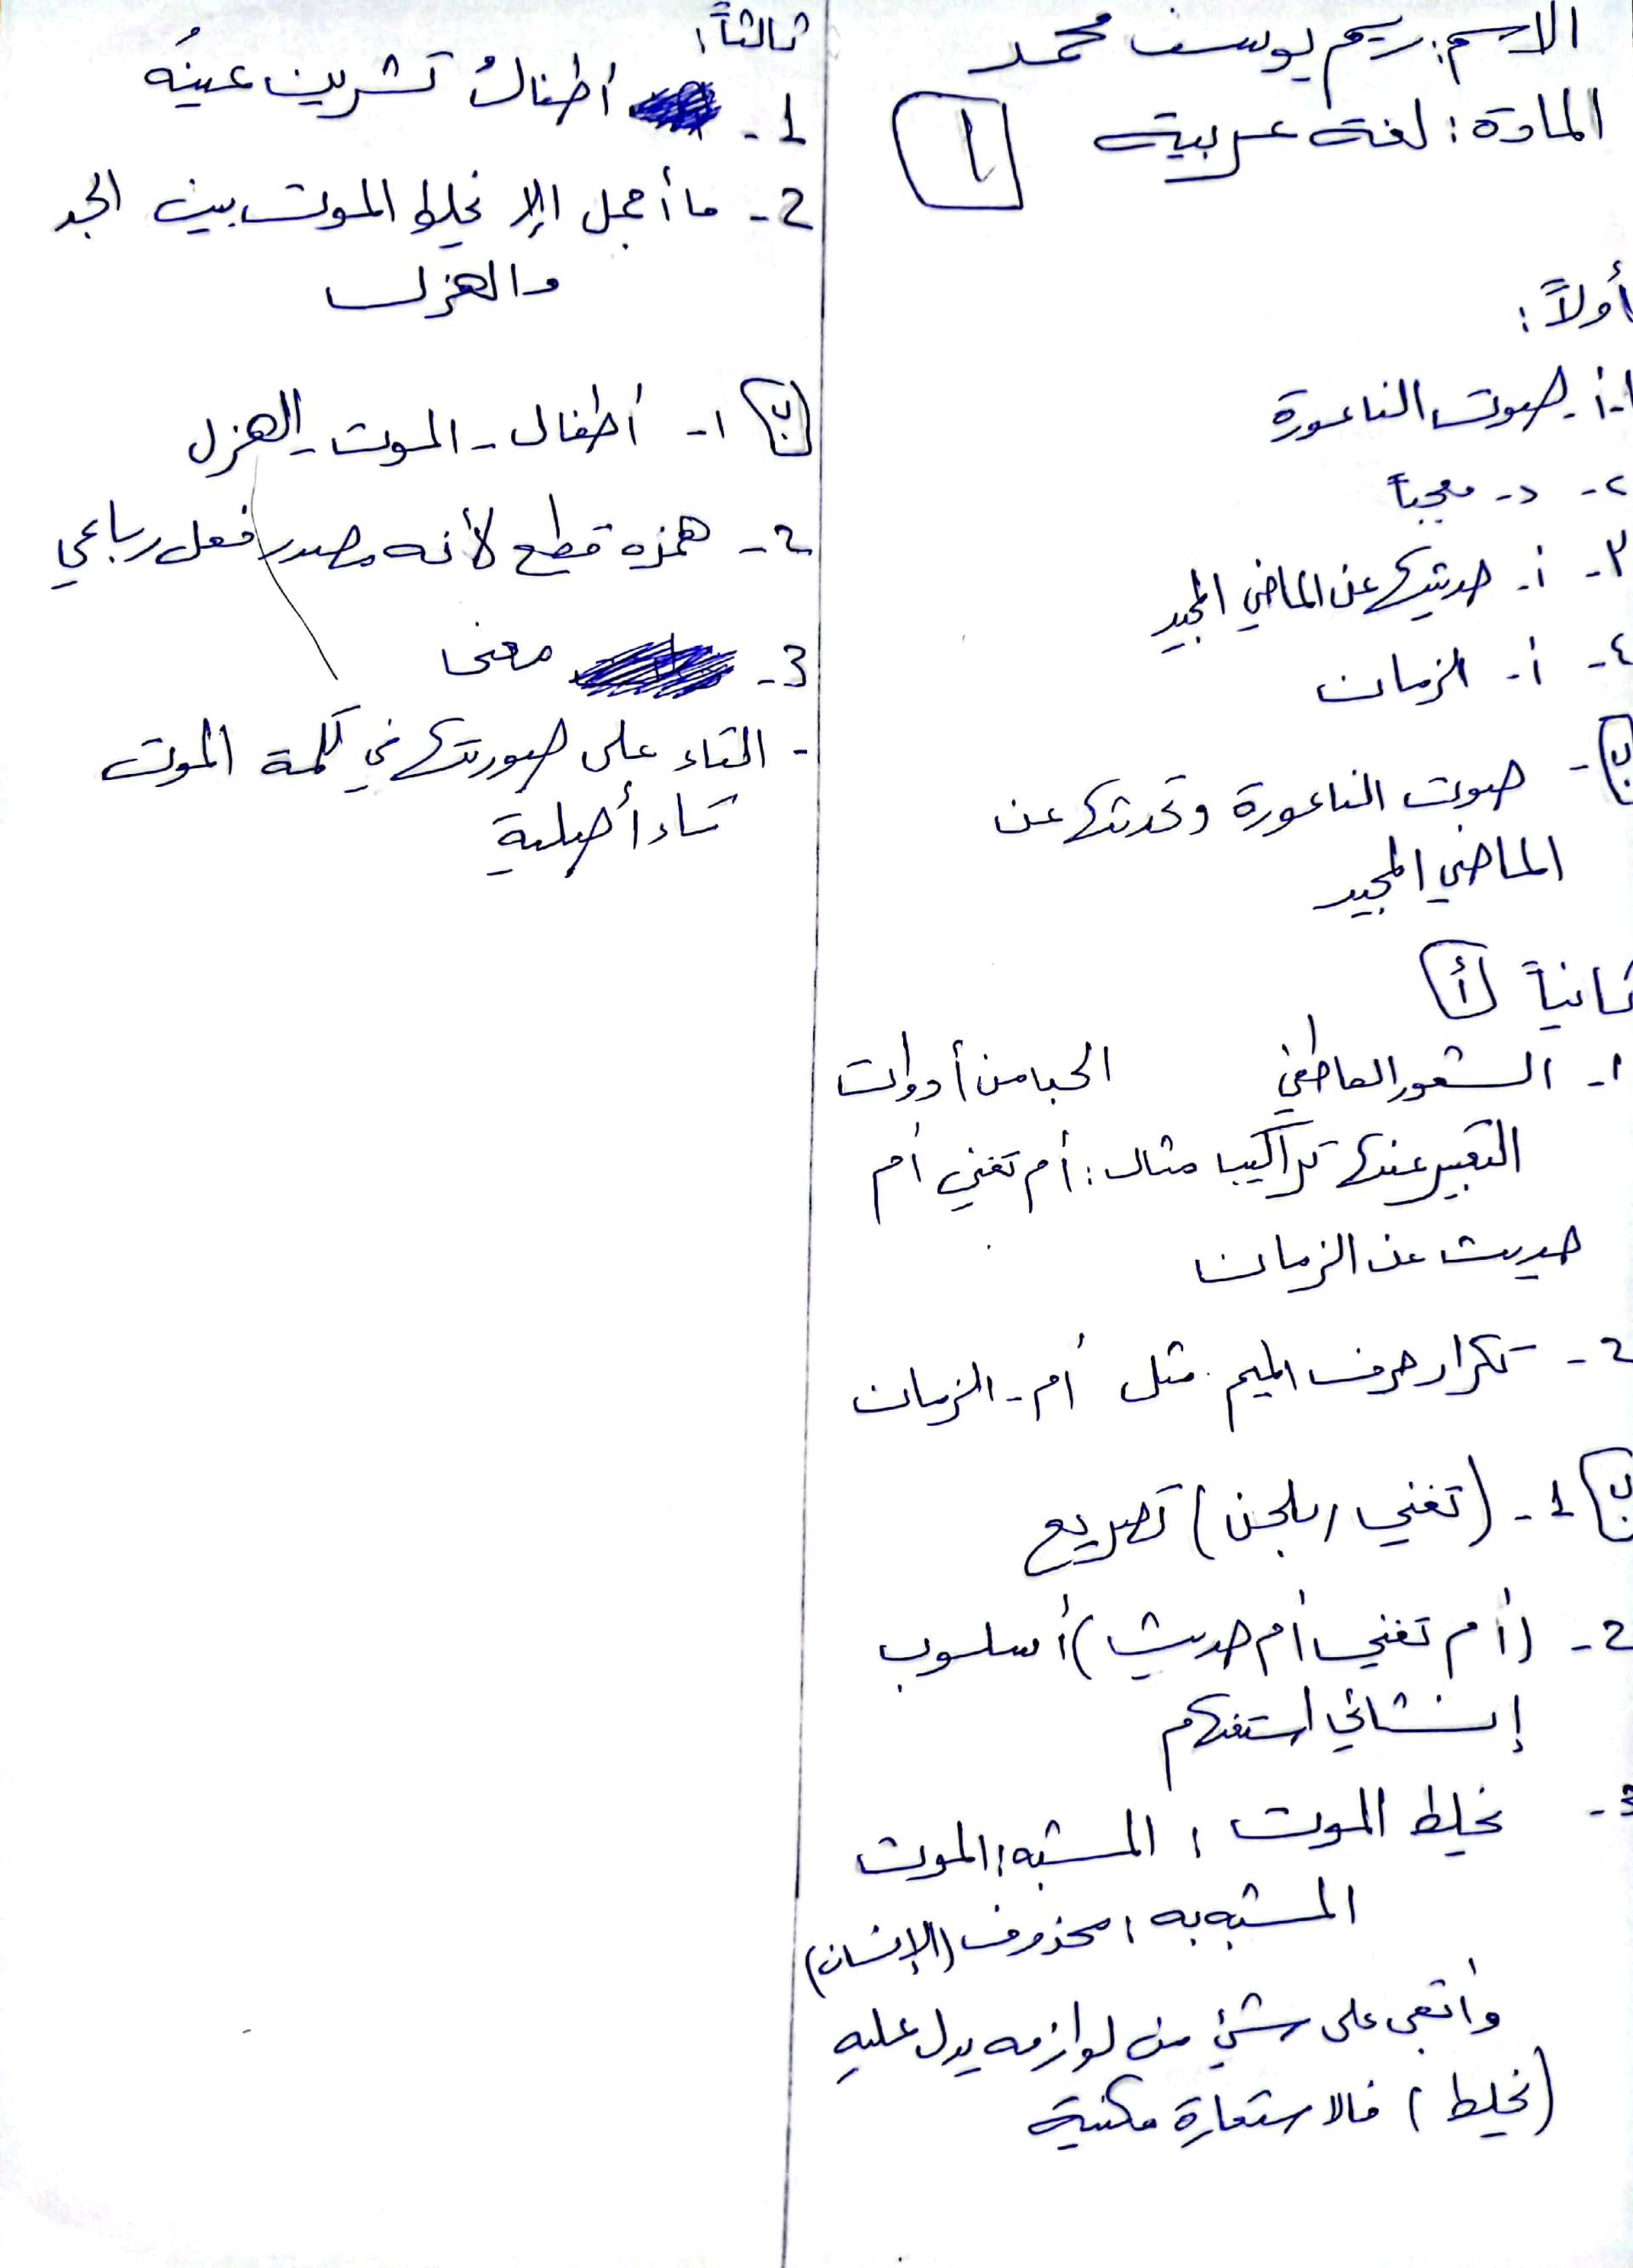 الاسم: ريم يوسف محمد
المادة: لغة عربية
1
أولاً:
1- أ- صوت الناعورة
٢- د- معجباً
٣- أ- حديثها عن الماضي المجيد
٤- أ- الزمان
ب - صوت الناعورة وتحدثها عن
الماضي المجيد
ثانياً أ
١- الشعور العاطفي الحب من أدوات
التعبير عنها تراكيب مثال: أم تغني أم
حديث عن الزمان
2- تكرار حرف الميم. مثل أم - الزمان
ب 1- (تغني، بلحن) تصريع
2- (أم تغني أم حديث) أسلوب
إنشائي استفهام
3- نخلط الموت: المشبه: الموت
المشبه به: محذوف (الإنسان)
وأتقى على شيء من لوازمه يدل عليه
(نخلط) فالاستعارة مكنية
ثالثاً:
1- أطفالُ تشرين عينُه
2- ما أجمل إلا نخلط الموت بين الجد
والهزل
ب ١- أطفال - الموت - الهزل
2- همزه قطع لأنه مصدر فعل رباعي
3- معنى
- التاء على صورتها في كلمة الموت
تاء أصلية